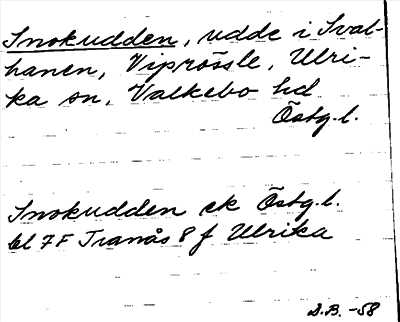 Snokudden, udde i Sval-
hanen, Viprössle, Ulri-
ka sn, Valkebo hd
Östg. l.
Snokudden ek Östg. l.
bl 7 F Tranås 8 f Ulrika
D.B. -58